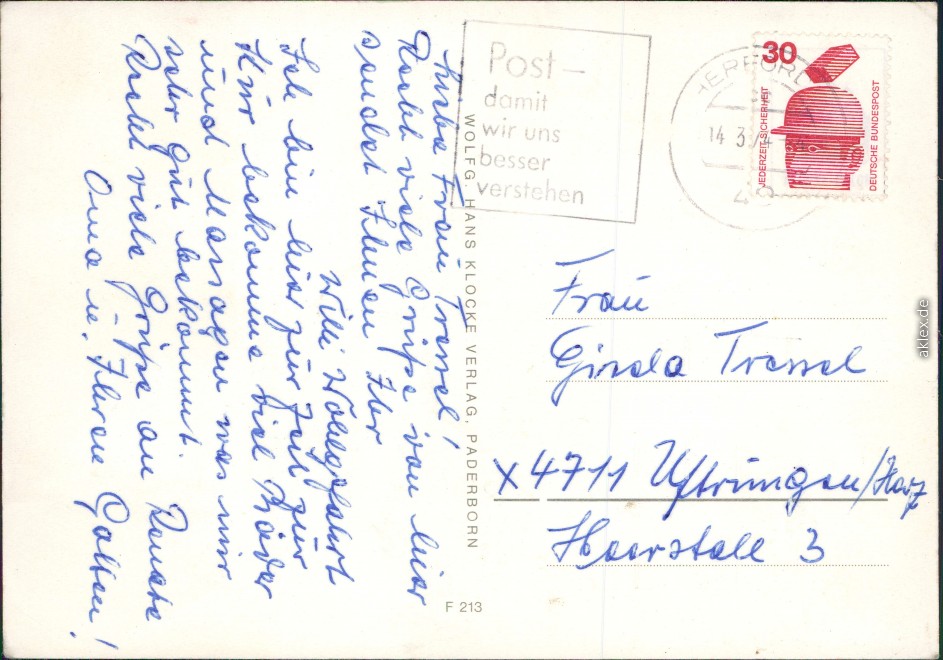 Liebe Frau Tressel!
Recht viele Grüße von hier
sendet Ihnen Ihr
Willi Wohlgefahrt
Ich bin hier zur Zeit zur
Kur bekomme viel Bäder
und Massagen was mir
sehr gut bekommt.
Recht viele Grüße an Renate
Oma u. Ihren Gatten!
WOLFG. HANS KLOCKE VERLAG, PADERBORN
F 213
Post–
damit
wir uns
besser
verstehen
HERFORD
14.3.74
30
JEDERZEIT SICHERHEIT
DEUTSCHE BUNDESPOST
Frau
Gisela Tressel
X4711 Uftrungen/Harz
Heerstall 3
aklex.de